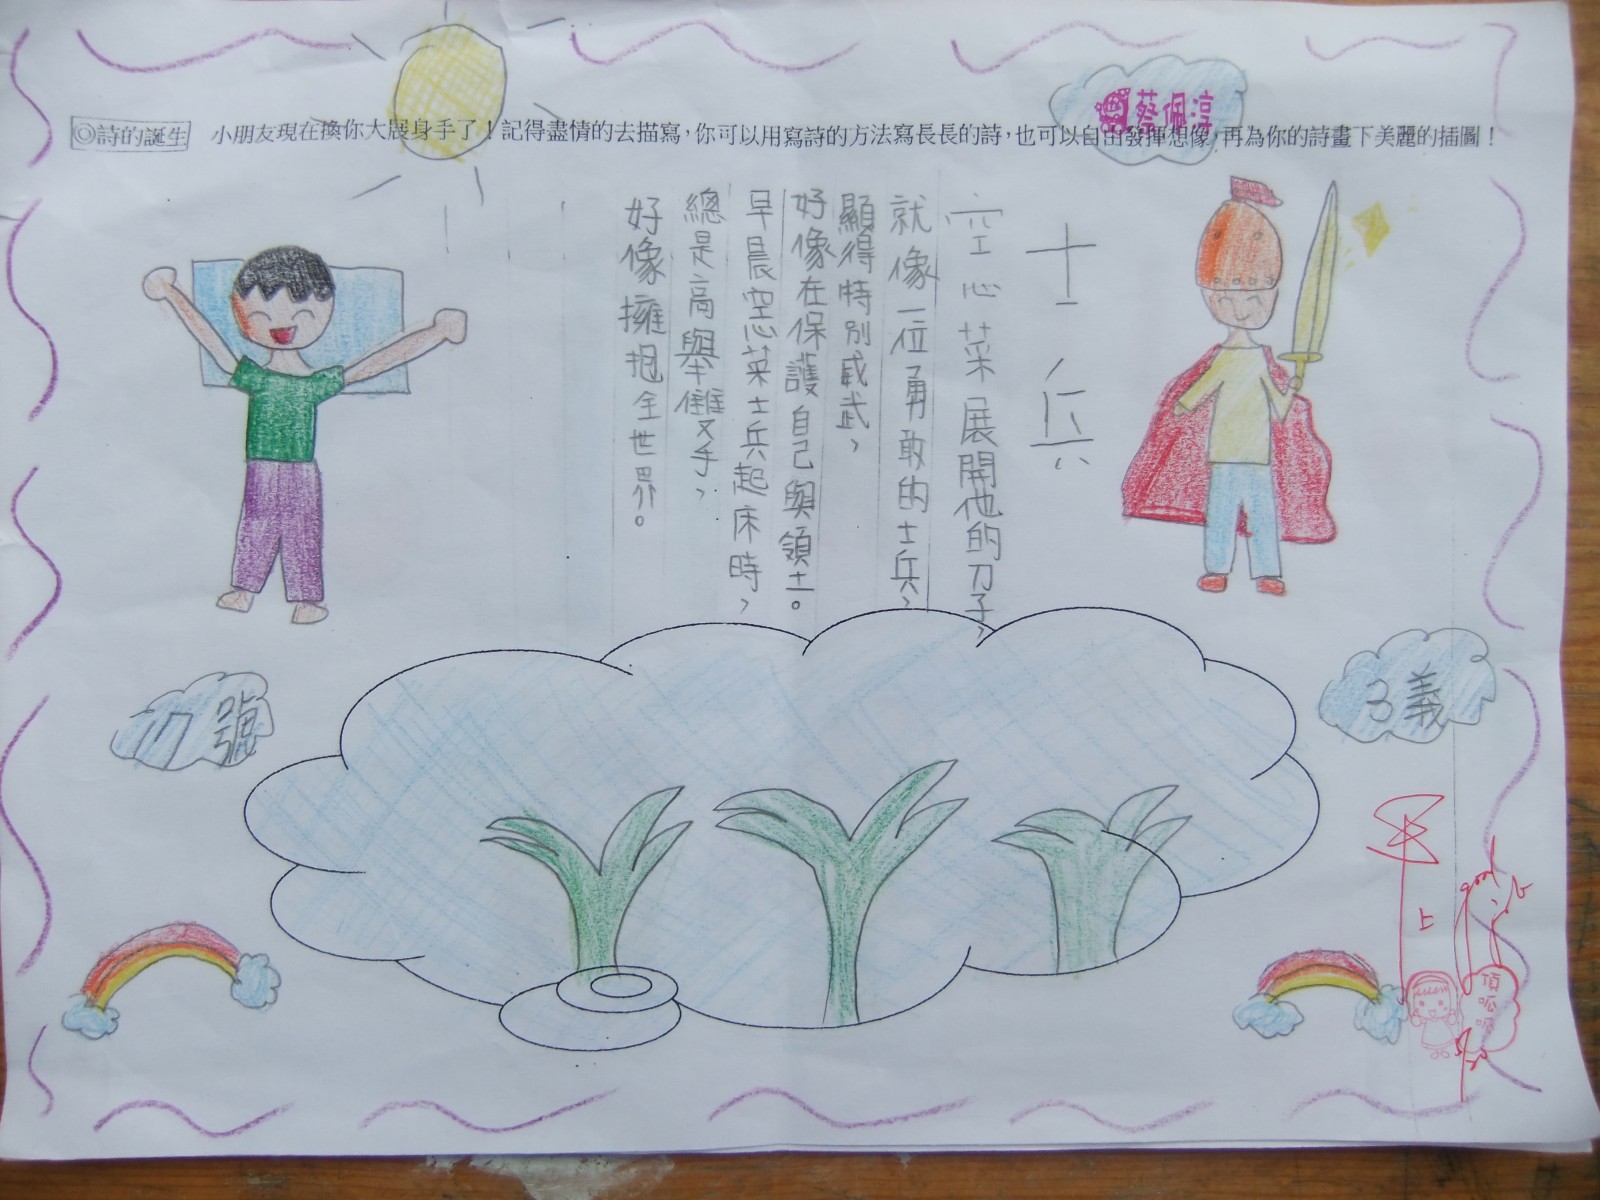 ◎詩的誕生 小朋友現在換你大展身手了！記得盡情的去描寫，你可以用寫詩的方法寫長長的詩，也可以自由發揮想像，再為你的詩畫下美麗的插圖！
蔡佩淳
士兵
空心菜展開他的刀子，
就像一位勇敢的士兵，
顯得特別威武，
好像在保護自己與領土。
早晨空心菜士兵起床時，
總是高舉雙手，
好像擁抱全世界。
3義
17號
上
good job
頂呱呱